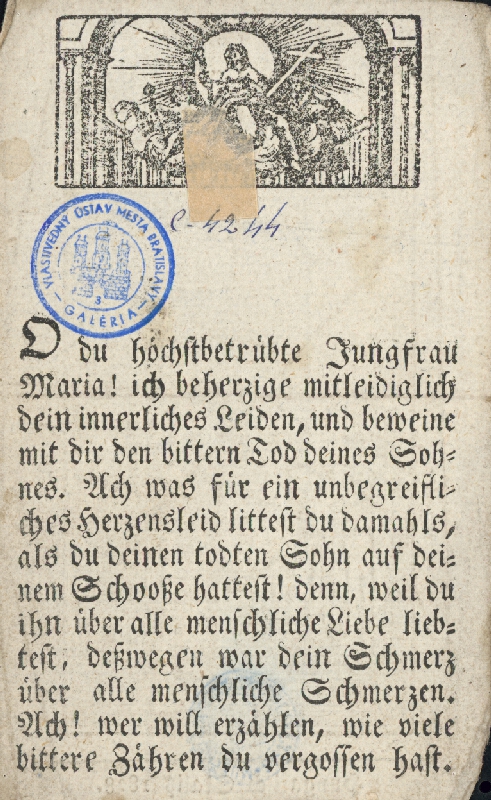 VLASTIVEDNÝ ÚSTAV MESTA BRATISLAVY
3
GALÉRIA
C-4244
O du höchstbetrübte Jungfrau
Maria! ich beherzige mitleidiglich
dein innerliches Leiden, und beweine
mit dir den bittern Tod deines Soh-
nes. Ach was für ein unbegreifli-
ches Herzensleid littest du damahls,
als du deinen todten Sohn auf dei-
nem Schooße hattest! denn, weil du
ihn über alle menschliche Liebe lieb-
test, deßwegen war dein Schmerz
über alle menschliche Schmerzen.
Ach! wer will erzählen, wie viele
bittere Zähren du vergossen hast.